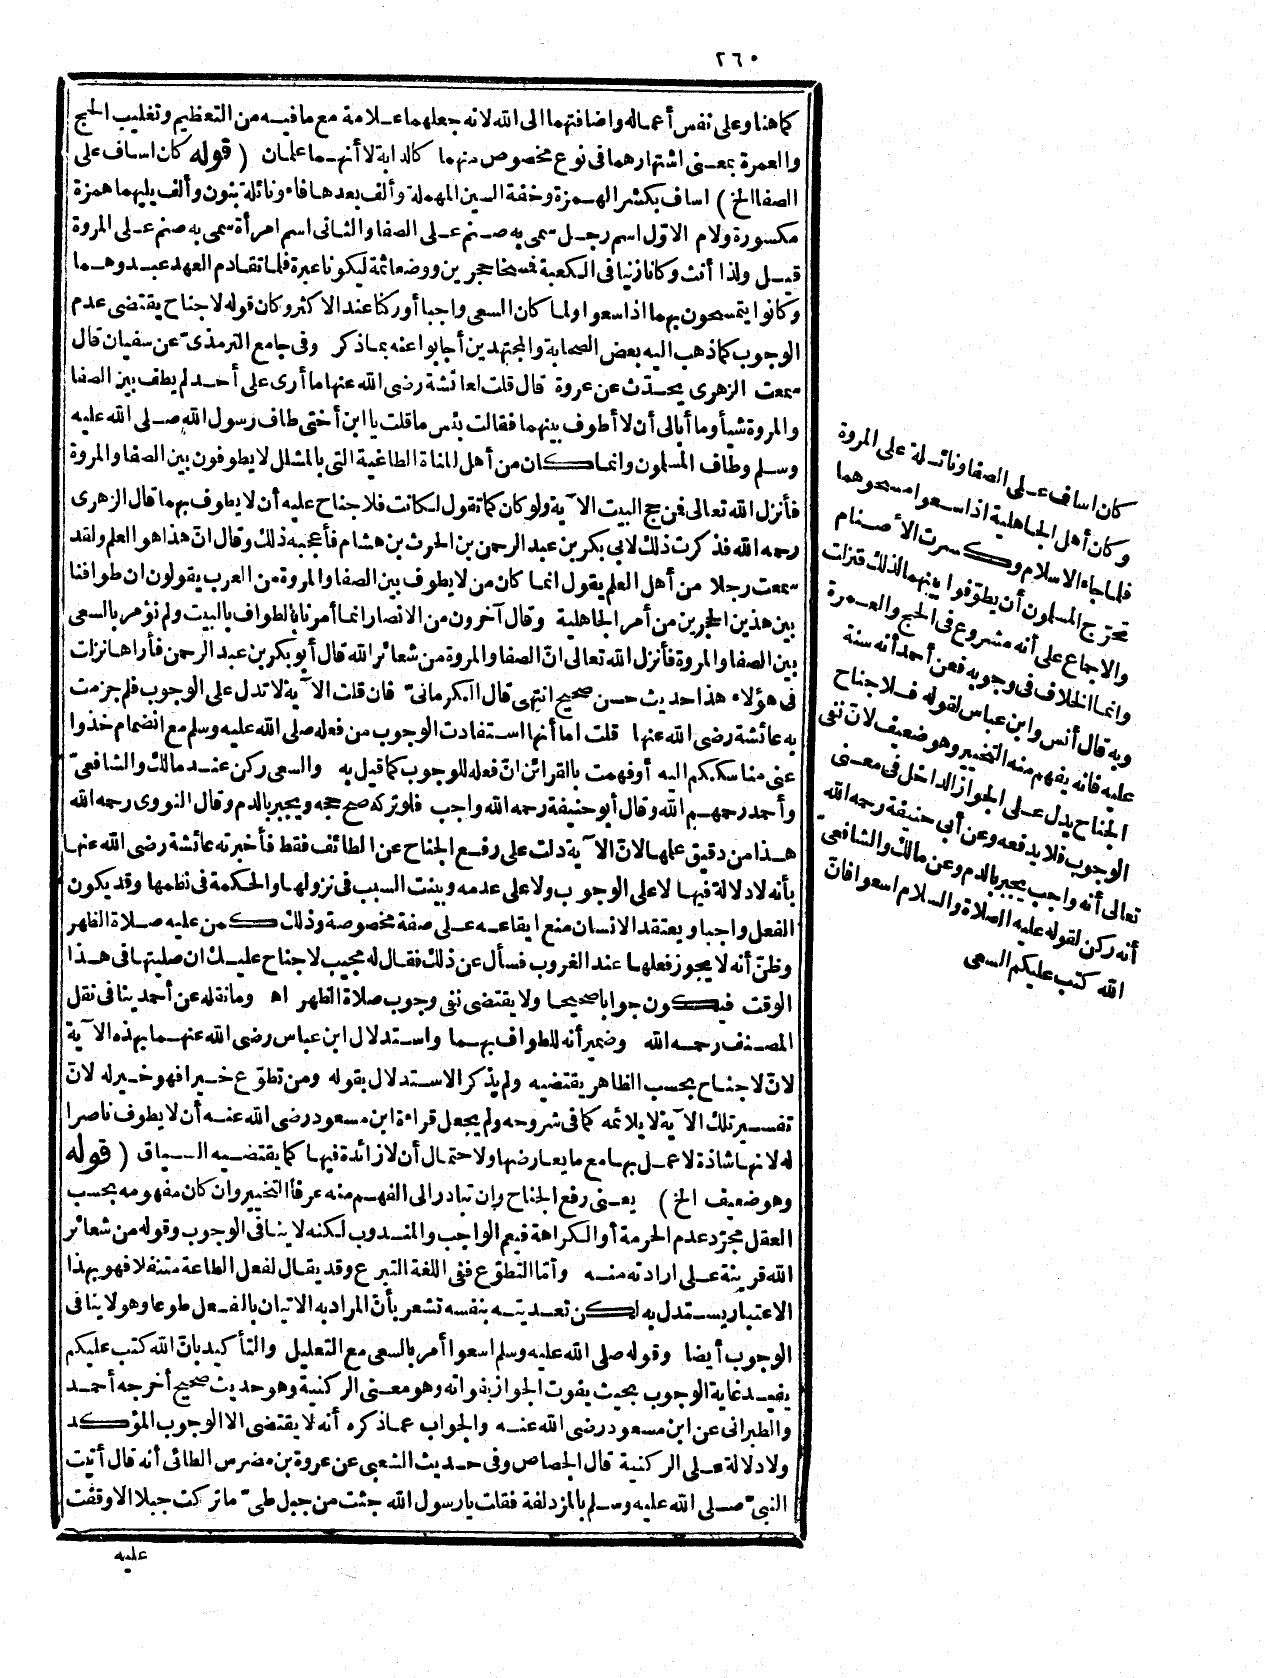 ٢٦٠
كما هنا وعلى نفس أعماله واضافتهما الى الله لانه جعلهما علامة مع ما فيه من التعظيم وتغليب الحج
والعمرة بمعنى اشتهارهما فى نوع مخصوص منهما كالدابة لا أنهما علمان (قوله كان اساف على
الصفا الخ) اساف بكسر الهمزة وخفة السين المهملة وألف بعدها فاء ونائلة بنون وألف يليها همزة
مكسورة ولام الاوّل اسم رجل سمى به صنم على الصفا والثانى اسم امرأة سمى به صنم على المروة
قيل ولذا أنث وكانا زنيا فى الكعبة فمسخا حجرين ووضعا ثمة ليكونا عبرة فلما تقادم العهد عبدوهما
وكانوا يتمسحون بهما اذا سعوا ولما كان السعى واجبا أوركنا عند الاكثر وكان قوله لا جناح يقتضى عدم
الوجوب كما ذهب اليه بعض الصحابة والمجتهدين أجابوا عنه بما ذكر وفى جامع الترمذىّ عن سفيان قال
سمعت الزهرى يحدّث عن عروة قال قلت لعائشة رضى الله عنها ما أرى على أحد لم يطف بين الصفا
والمروة شيأ وما أبالى أن لا أطوف بينهما فقالت بئس ما قلت يا ابن أختى طاف رسول الله صلى الله عليه
وسلم وطاف المسلمون وانما كان من أهل لمناة الطاغية التى بالمشلل لا يطوفون بين الصفا والمروة
فأنزل الله تعالى فمن حج البيت الآية ولو كان كما تقول لكانت فلا جناح عليه أن لا يطوف بهما قال الزهرى
رحمه الله فذكرت ذلك لابى بكر بن عبد الرحمن بن الحرث بن هشام فأعجبه ذلك وقال انّ هذا هو العلم ولقد
سمعت رجلا من أهل العلم يقول انما كان من لا يطوف بين الصفا والمروة من العرب يقولون ان طوافنا
بين هذين الحجرين من أمر الجاهلية وقال آخرون من الانصار انما أمرنا بالطواف بالبيت ولم نؤمر بالسعى
بين الصفا والمروة فأنزل الله تعالى انّ الصفا والمروة من شعائر الله قال أبو بكر بن عبد الرحمن فأراها نزلت
فى هؤلاء هذا حديث حسن صحيح انتهى قال الكرمانىّ فان قلت الآية لا تدل على الوجوب فلم جزمت
به عائشة رضى الله عنها قلت اما أنها استفادت الوجوب من فعله صلى الله عليه وسلم مع انضمام خذوا
عنى مناسككم اليه أو فهمت بالقرائن انّ فعله للوجوب كما قيل به والسعى ركن عند مالك والشافعىّ
وأحمد رحمهم الله وقال أبو حنيفة رحمه الله واجب فلو تركه صح حجه ويجبر بالدم وقال النووى رحمه الله
هذا من دقيق علمها لانّ الآية دلت على رفع الجناح عن الطائف فقط فأخبرته عائشة رضى الله عنها
بأنه لا دلالة فيها لا على الوجوب ولا على عدمه وبينت السبب فى نزولها والحكمة فى نظمها وقد يكون
الفعل واجبا ويعتقد الانسان منع ايقاعه على صفة مخصوصة وذلك كمن عليه صلاة الظهر
وظنّ أنه لا يجوز فعلها عند الغروب فسأل عن ذلك فقال له مجيب لا جناح عليك ان صليتها فى هذا
الوقت فيكون جوابا صحيحا ولا يقتضى نفى وجوب صلاة الظهر اه وما نقله عن أحمد ينافى نقل
المصنف رحمه الله وضمير أنه للطواف بهما واستدلال ابن عباس رضى الله عنهما بهذه الآية
لانّ لا جناح بحسب الظاهر يقتضيه ولم يذكر الاستدلال بقوله ومن تطوّع خيرا فهو خير له لانّ
تفسير تلك الآية لا يلائمه كما فى شروحه ولم يجعل قراءة ابن مسعود رضى الله عنه أن لا يطوف ناصرا
له لانها شاذة لا عمل بها مع ما يعارضها ولاحتمال أن لا زائدة فيها كما يقتضيه السياق (قوله
وهو ضعيف الخ) يعنى رفع الجناح وان تبادر الى الفهم منه عرفا التخيير وان كان مفهومه بحسب
العقل مجرّد عدم الحرمة أو الكراهة فيعم الواجب والمندوب لكنه لا ينافى الوجوب وقوله من شعائر
الله قرينة على ارادته منه وأمّا التطوّع ففى اللغة التبرع وقد يقال لفعل الطاعة متنفلا فهو بهذا
الاعتبار يستدل به لكن تعديته بنفسه تشعر بأنّ المراد به الاتيان بالفعل طوعا وهو لا ينافى
الوجوب أيضا وقوله صلى الله عليه وسلم اسعوا أمر بالسعى مع التعليل والتأكيد بانّ الله كتب عليكم
يفيد غاية الوجوب بحيث يفوت الجواز بفواته وهو معنى الركنية وهو حديث صحيح أخرجه أحمد
والطبرانى عن ابن مسعود رضى الله عنه والجواب عما ذكره أنه لا يقتضى الا الوجوب المؤكد
ولا دلالة على الركنية قال الجصاص وفى حديث الشعبى عن عروة بن مضرس الطائى أنه قال أتيت
النبىّ صلى الله عليه وسلم بالمزدلفة فقلت يا رسول الله جئت من جبل طىّ ما تركت جبلا الا وقفت
عليه
كان اساف على الصفا ونائلة على المروة
وكان أهل الجاهلية اذا سعوا مسحوهما
فلما جاء الاسلام وكسرت الاصنام
تحرّج المسلمون أن يطوّفوا بينهما لذلك فنزلت
والاجماع على أنه مشروع فى الحج والعمرة
وانما الخلاف فى وجوبه فعن أحمد أنه سنة
وبه قال أنس وابن عباس لقوله فلا جناح
عليه فانه يفهم منه التخيير وهو ضعيف لانّ نفى
الجناح يدل على الجواز الداخل فى معنى
الوجوب فلا يدفعه وعن أبى حنيفة رحمه الله
تعالى أنه واجب يجبر بالدم وعن مالك والشافعىّ
أنه ركن لقوله عليه الصلاة والسلام اسعوا فانّ
الله كتب عليكم السعى